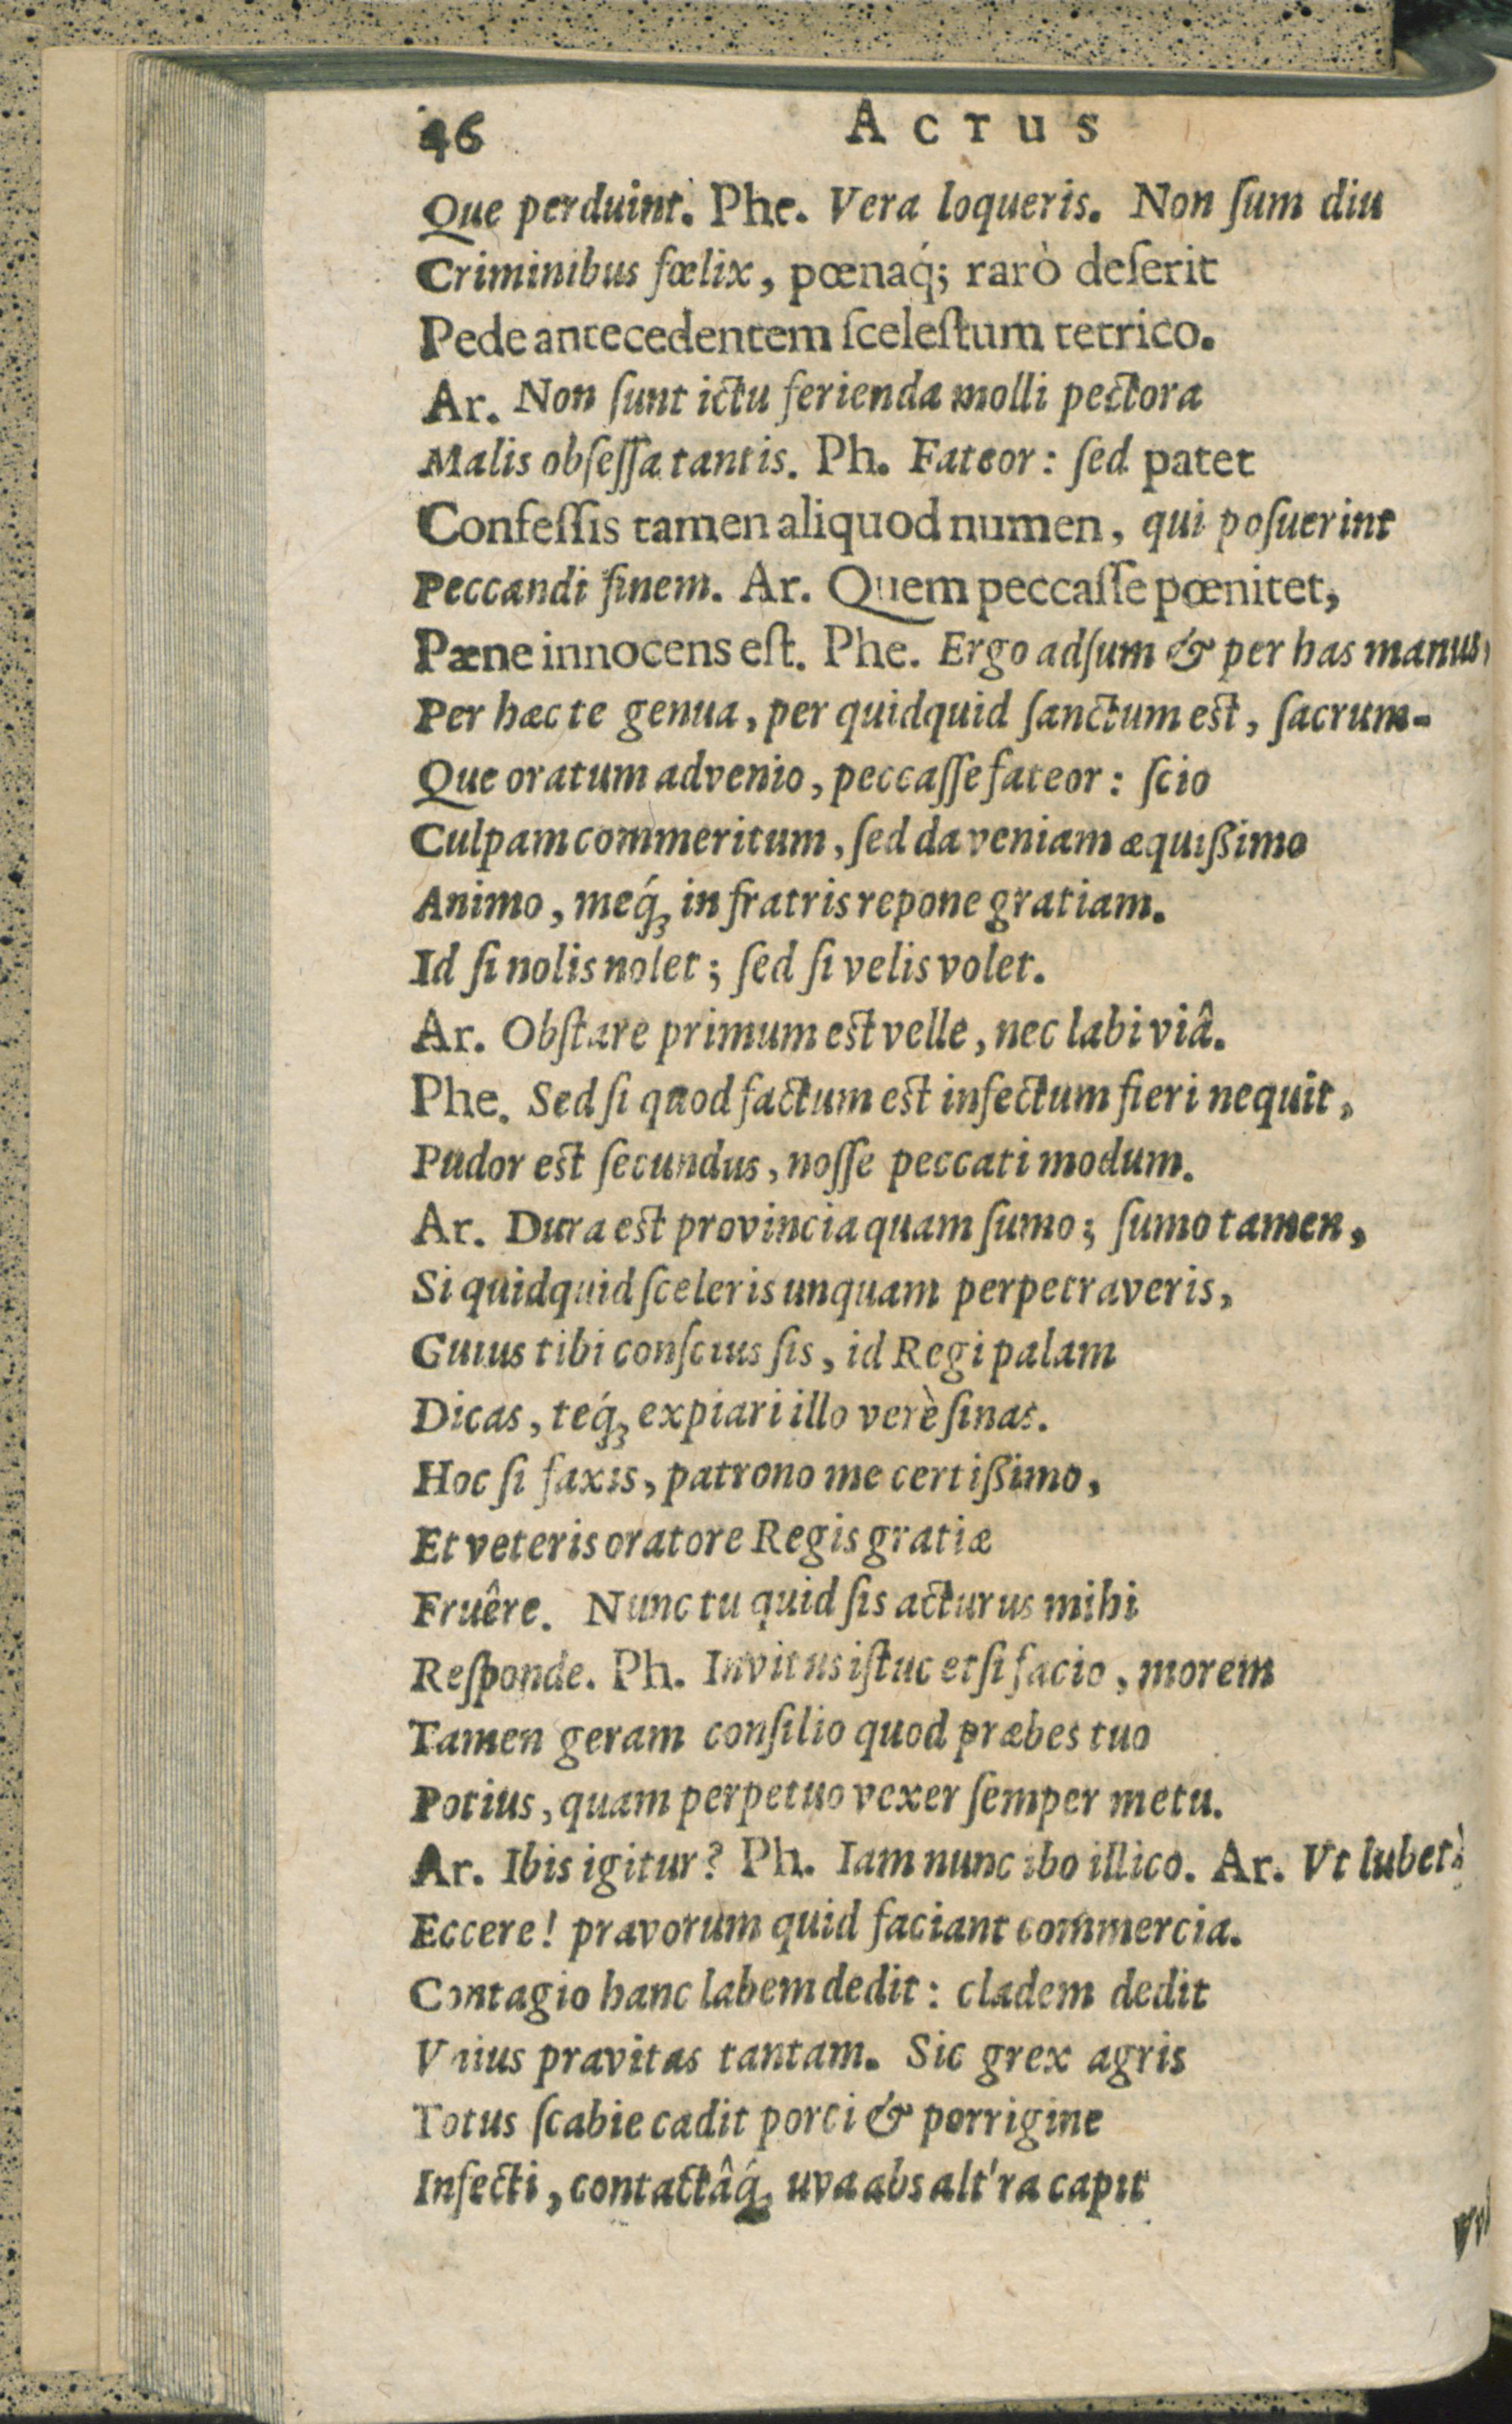 46 ACTUS
Que perduint. Phe. Vera loqueris. Non ſum diu
Criminibus fœlix, pœnaq́; rarò deſerit
Pede antecedentem ſceleſtum tetrico.
Ar. Non ſunt ictu ferienda molli pectora
Malis obſeſſa tantis. Ph. Fateor: ſed patet
Confeſſis tamen aliquod numen, qui poſuerint
Peccandi finem. Ar. Quem peccaſſe pœnitet,
Pæne innocens eſt. Phe. Ergo adſum & per has manus,
Per hæc te genua, per quidquid ſanctum eſt, ſacrum-
Que oratum advenio, peccaſſe fateor: ſcio
Culpam commeritum, ſed da veniam æquißimo
Animo, meq́ꝫ in fratris repone gratiam.
Id ſi nolis nolet; ſed ſi velis volet.
Ar. Obſtare primum eſt velle, nec labi viâ.
Phe. Sed ſi quod factum eſt infectum fieri nequit,
Pudor eſt ſecundus, noſſe peccati modum.
Ar. Dura eſt provincia quam ſumo; ſumo tamen,
Si quidquid ſceleris unquam perpetraveris,
Guius tibi conſcius ſis, id Regi palam
Dicas, teq́ꝫ expiari illo verè ſinas.
Hoc ſi faxis, patrono me certißimo,
Et veteris oratore Regis gratiæ
Fruêre. Nunc tu quid ſis acturus mihi
Reſponde. Ph. Invitus iſtuc etſi facio, morem
Tamen geram conſilio quod præbes tuo
Potius, quam perpetuo vexer ſemper metu.
Ar. Ibis igitur? Ph. Iam nunc ibo illico. Ar. Vt lubet.
Eccere! pravorum quid faciant commercia.
Contagio hanc labem dedit: cladem dedit
Vnius pravitas tantam. Sic grex agris
Totus ſcabie cadit porci & porrigine
Infecti, contactâq́ꝫ uva abs alt'ra capit